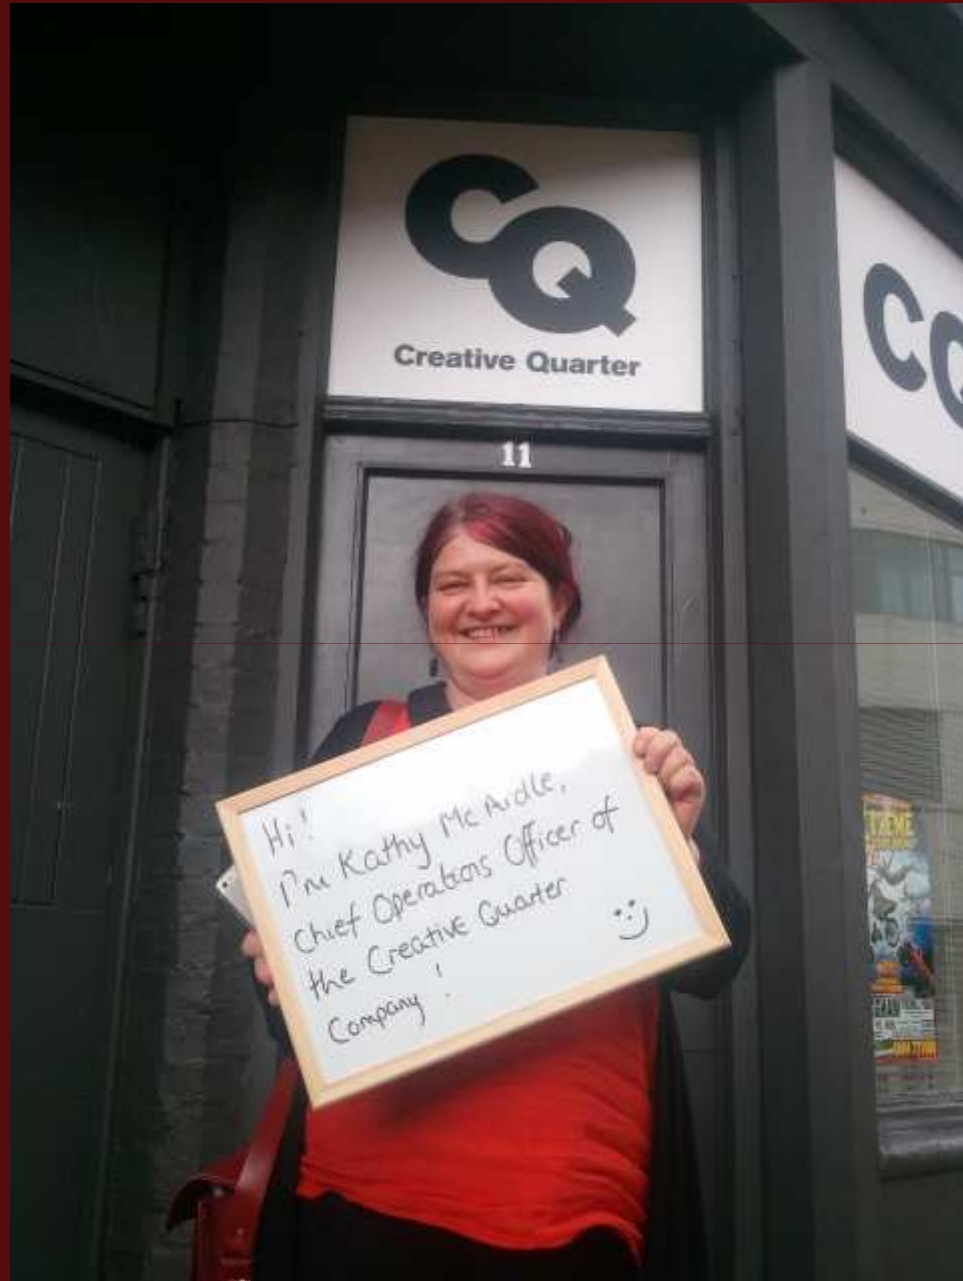 CQ
Creative Quarter
CQ
11
Hi!
I'm Kathy McArdle,
Chief Operations Officer of
the Creative Quarter
Company!